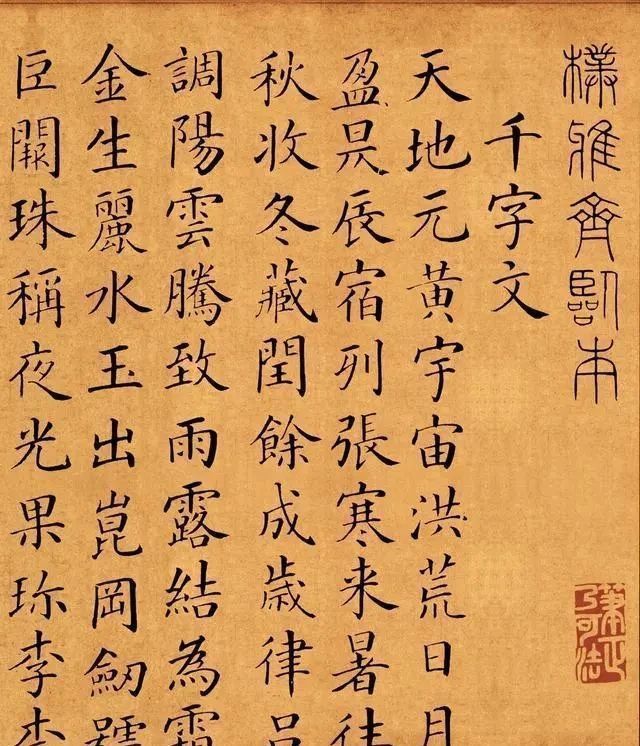 樸雅齋臨本
筆正乃可法
千字文
天地元黃宇宙洪荒日月
盈昃辰宿列張寒来暑往
秋收冬藏閏餘成歲律吕
調陽雲騰致雨露結為霜
金生麗水玉出崑岡劒號
巨闕珠稱夜光果珎李柰